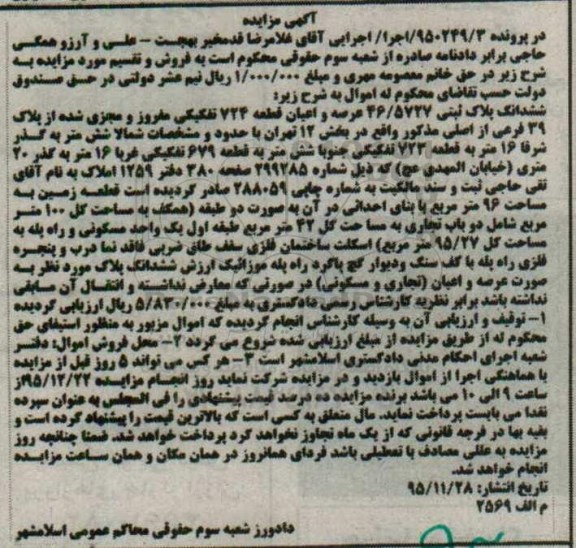 آگهی مزایده
در پرونده ۹۵۰۲۴۹/۳/اجرا/ اجرایی آقای غلامرضا قدمخیر بهجت – علی و آرزو همگی
حاجی برابر دادنامه صادره از شعبه سوم حقوقی محکوم است به فروش و تقسیم مورد مزایده به
شرح زیر در حق خانم معصومه مهری و مبلغ ۱/۰۰۰/۰۰۰ ریال نیم عشر دولتی در حق صندوق
دولت حسب تقاضای محکوم له اموال به شرح زیر:
ششدانگ پلاک ثبتی ۴۶/۵۷۲۷ عرصه و اعیان قطعه ۷۲۴ تفکیکی مفروز و مجزی شده از پلاک
۳۹ فرعی از اصلی مذکور واقع در بخش ۱۲ تهران با حدود و مشخصات شمالا شش متر به گذر
شرقا ۱۶ متر به قطعه ۷۲۳ تفکیکی جنوبا شش متر به قطعه ۶۷۹ تفکیکی غربا ۱۶ متر به گذر ۲۰
متری (خیابان المهدی عج) که ذیل شماره ۲۹۹۲۸۵ صفحه ۳۸۰ دفتر ۱۲۵۹ املاک به نام آقای
نقی حاجی ثبت و سند مالکیت به شماره چاپی ۲۸۸۰۵۹ صادر گردیده است قطعه زمین به
مساحت ۹۶ متر مربع با بنای احداثی در آن به صورت دو طبقه (همکف به مساحت کل ۱۰۰ متر
مربع شامل دو باب تجاری به مسا حت کل ۴۲ متر مربع طبقه اول یک واحد مسکونی و راه پله به
مساحت کل ۹۵/۲۷ متر مربع) اسکلت ساختمان فلزی سقف طاق ضربی فاقد نما درب و پنجره
فلزی راه پله با کف سنگ ودیوار گچ پاگرد راه پله موزائیک ارزش ششدانگ پلاک مورد نظر به
صورت عرصه و اعیان (تجاری و مسکونی) در صورتی که معارض نداشته و انتقال آن مسابقی
نداشته باشد برابر نظریه کارشناس رسمی دادگستری به مبلغ ۵/۸۳۰/۰۰۰ ریال ارزیابی گردیده
۱– توقیف و ارزیابی آن به وسیله کارشناس انجام گردیده که اموال مزبور به منظور استیفای حق
محکوم له از طریق مزایده از مبلغ ارزیابی شده شروع می گردد ۲– محل فروش اموال: دفتر
شعبه اجرای احکام مدنی دادگستری اسلامشهر است ۳– هر کس می تواند ۵ روز قبل از مزایده
با هماهنگی اجرا از اموال بازدید و در مزایده شرکت نماید روز انجام مزایده ۹۵/۱۲/۲۲از
ساعت ۹ الی ۱۰ می باشد برنده مزایده ده درصد قیمت پیشنهادی را فی المجلس به عنوان سپرده
نقدا می بایست پرداخت نماید. مال متعلق به کسی است که بالاترین قیمت را پیشنهاد کرده است و
بقیه بها در فرجه قانونی که از یک ماه تجاوز نخواهد کرد پرداخت خواهد شد. ضمنا چنانچه روز
مزایده به عللی مصادف با تعطیلی باشد فردای همانروز در همان مکان و همان ساعت مزایده
انجام خواهد شد.
تاریخ انتشار: ۹۵/۱۱/۲۸
م الف ۲۵۶۹
دادورز شعبه سوم حقوقی محاکم عمومی اسلامشهر